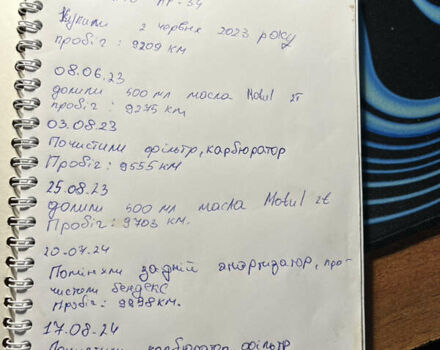 Купили 2 червня 2023 року
пробіг: 9209 км
08.06.23
долили 500 мл масла Motul 2T
пробіг: 9275 км
03.08.23
Почистили фільтр, карбюратор
Пробіг: 9555 км
25.08.23
долили 500 мл масла Motul 2t
Пробіг: 9703 км.
20.07.24
Поміняли задній амортизатор, про-
чистили бендекс
Пробіг: 9978 км.
17.08.24
Почистили карбюратор фільтр